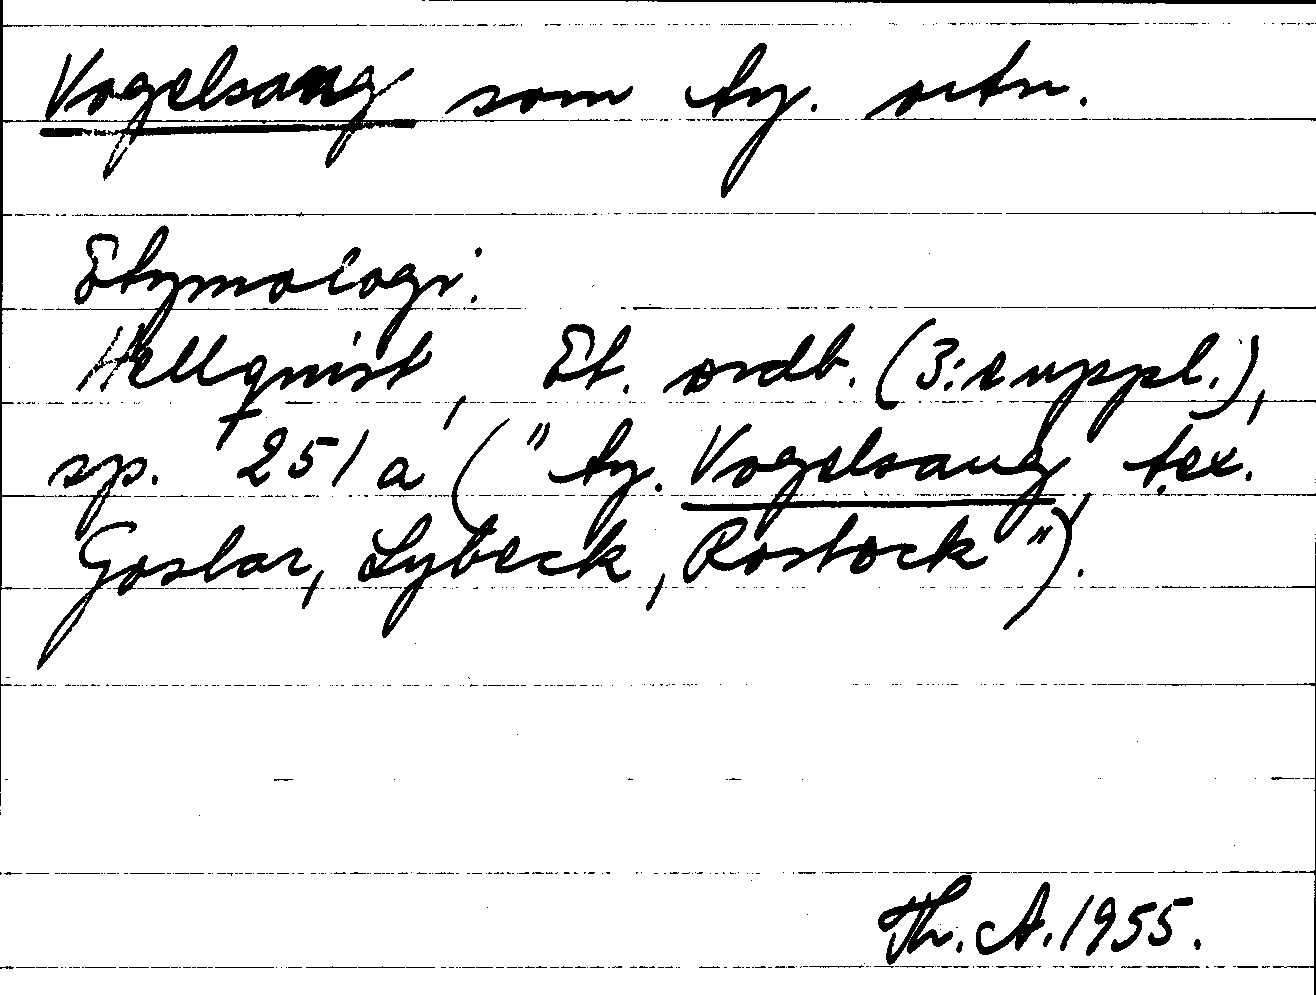 Vogelsang som ty. ortn.
Etymologi.
Hellquist, Et. ordb. (3:e uppl.),
sp. 251 a ("ty. Vogelsang, t.ex.
Goslar, Lybeck, Rostock").
Th. A. 1955.